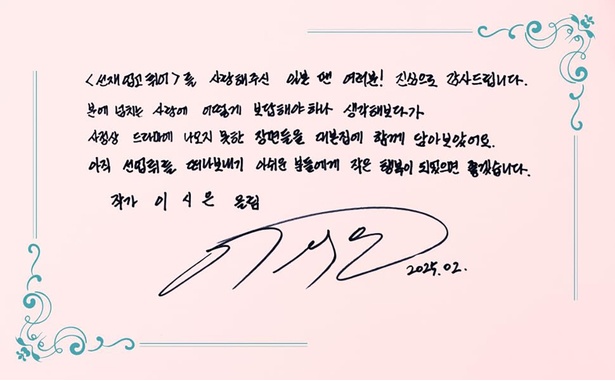 <선재 업고 튀어>를 사랑해주신 일본 팬 여러분! 진심으로 감사드립니다.
분에 넘치는 사랑에 어떻게 보답해야 하나 생각해보다가
사정상 드라마에 나오지 못한 장면들을 대본집에 함께 담아보았어요.
아직 선업튀를 떠나보내기 아쉬운 분들에게 작은 행복이 되었으면 좋겠습니다.
작가 이시은 올림
이시은
2025.02.